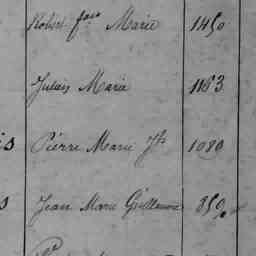 Robert fcois Marie 1450
Julien Marie 1183
is Pierre Marie Jh 1080
s Jean Marie Guillaume 850